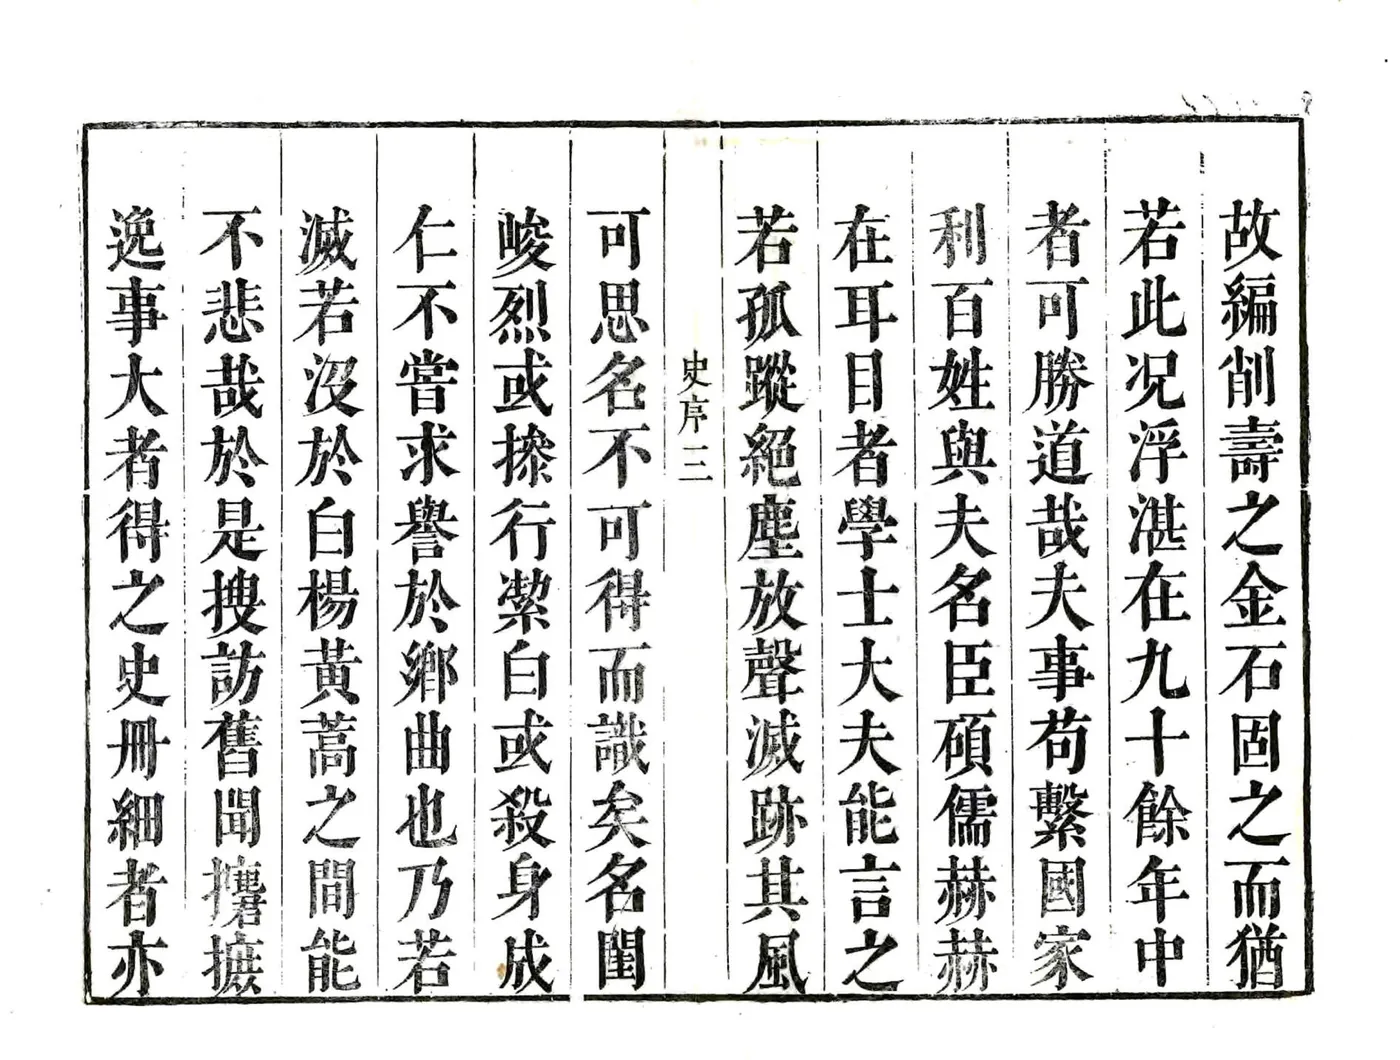 故編削壽之金石固之而猶
若此况浮湛在九十餘年中
者可勝道哉夫事苟繫國家
利百姓與夫名臣碩儒赫赫
在耳目者學士大夫能言之
若孤蹤絕塵放聲滅跡其風
史序 三
可思名不可得而識矣名閨
峻烈或摻行潔白或殺身成
仁不嘗求譽於鄉曲也乃若
滅若沒於白楊黃蒿之間能
不悲哉於是搜訪舊聞攟摭
逸事大者得之史冊細者亦